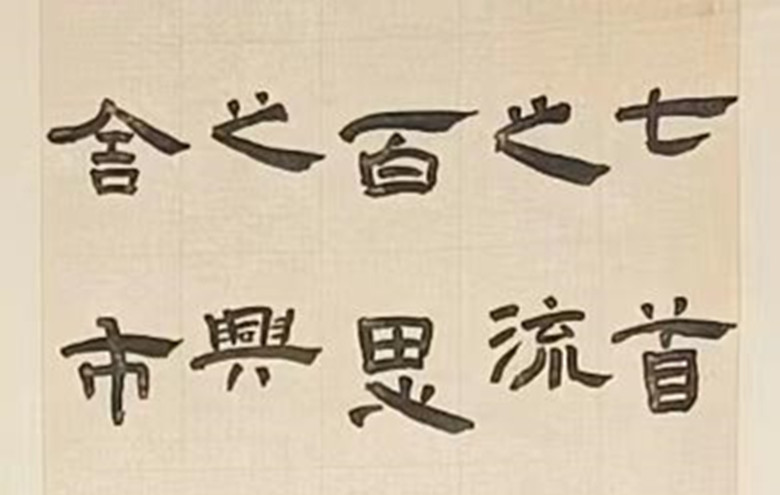 七首
之流
百思
之興
舍市